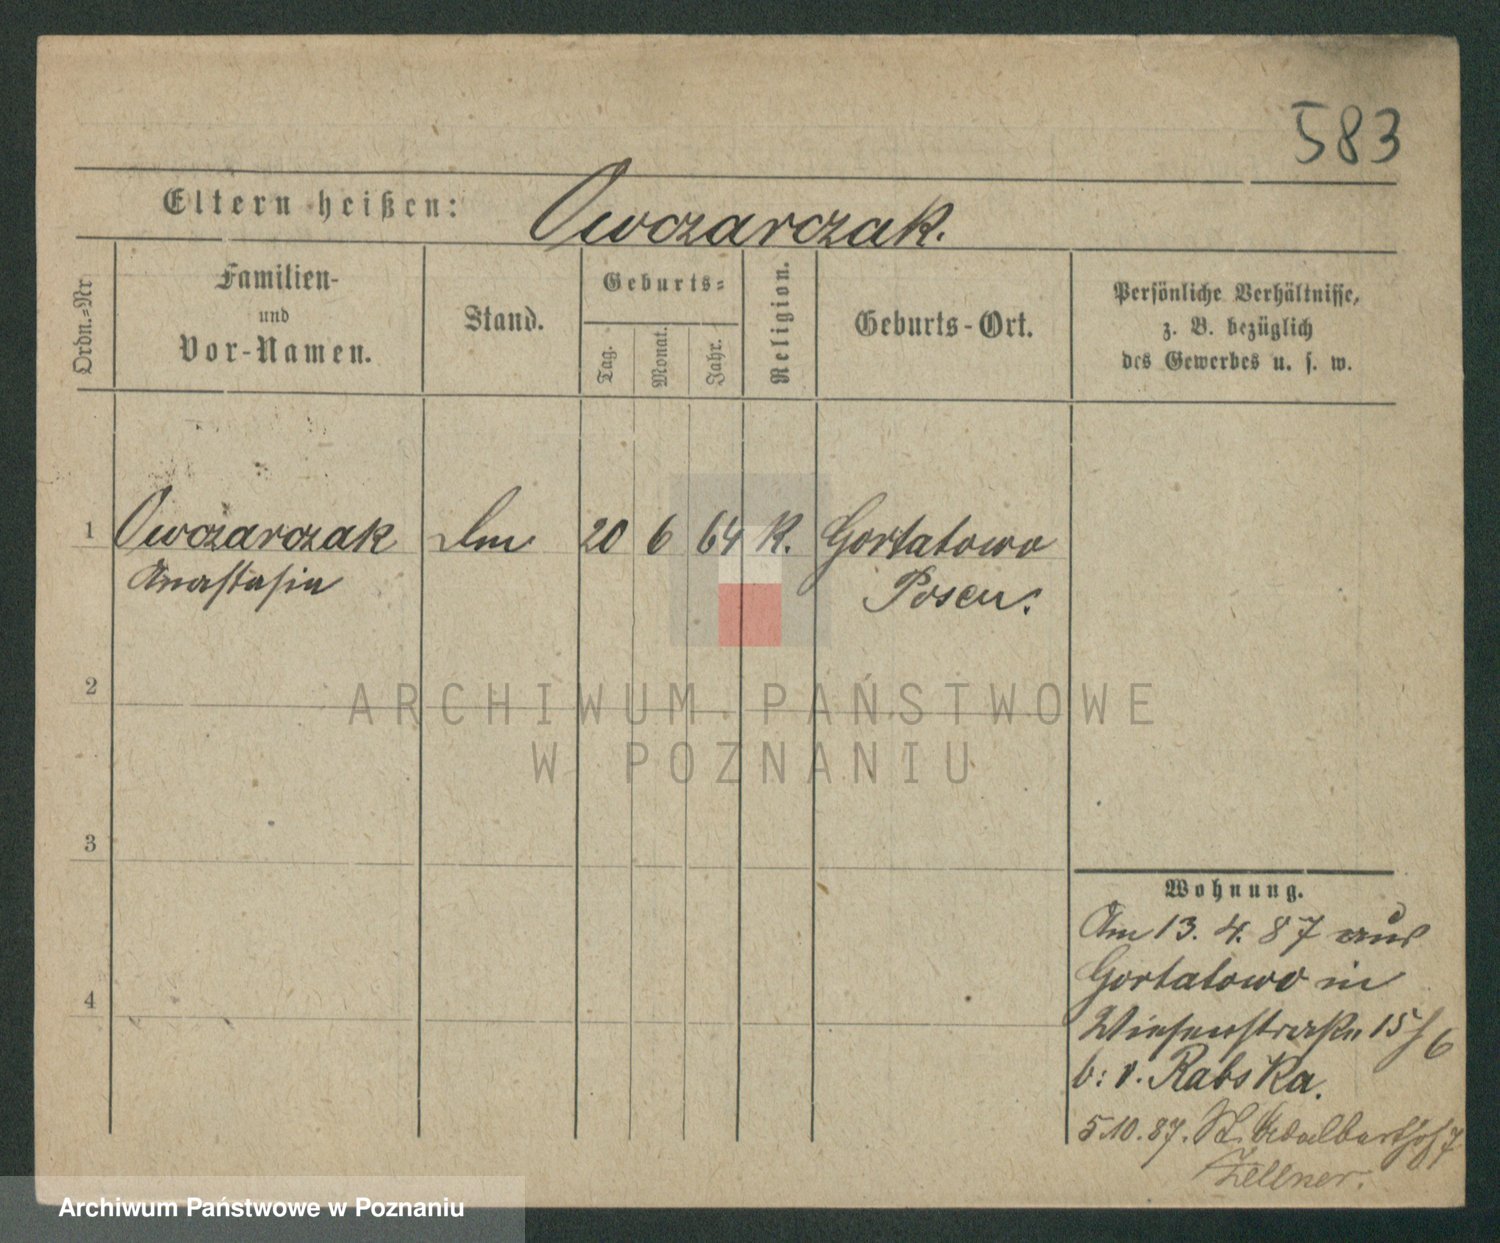 583
Eltern heißen: Owczarczak.
Ordn.=Nr
Familien-
und
Vor-Namen.
Stand.
Geburts=
Tag.
Monat.
Jahr.
Religion.
Geburts-Ort.
Persönliche Verhältnisse,
z. B. bezüglich
des Gewerbes u. s. w.
1 Owczarczak 20 6 64 K. Gortatowo
Anastasia Posen.
2
ARCHIWUM PAŃSTWOWE
W POZNANIU
3
4
Wohnung.
Am 13. 4. 87 aus
Gortatowo in
Wiesenstraße 15/6
b: v. Rabska.
5.10.87. St. Adalbertshof 7
Zellner.
Archiwum Państwowe w Poznaniu